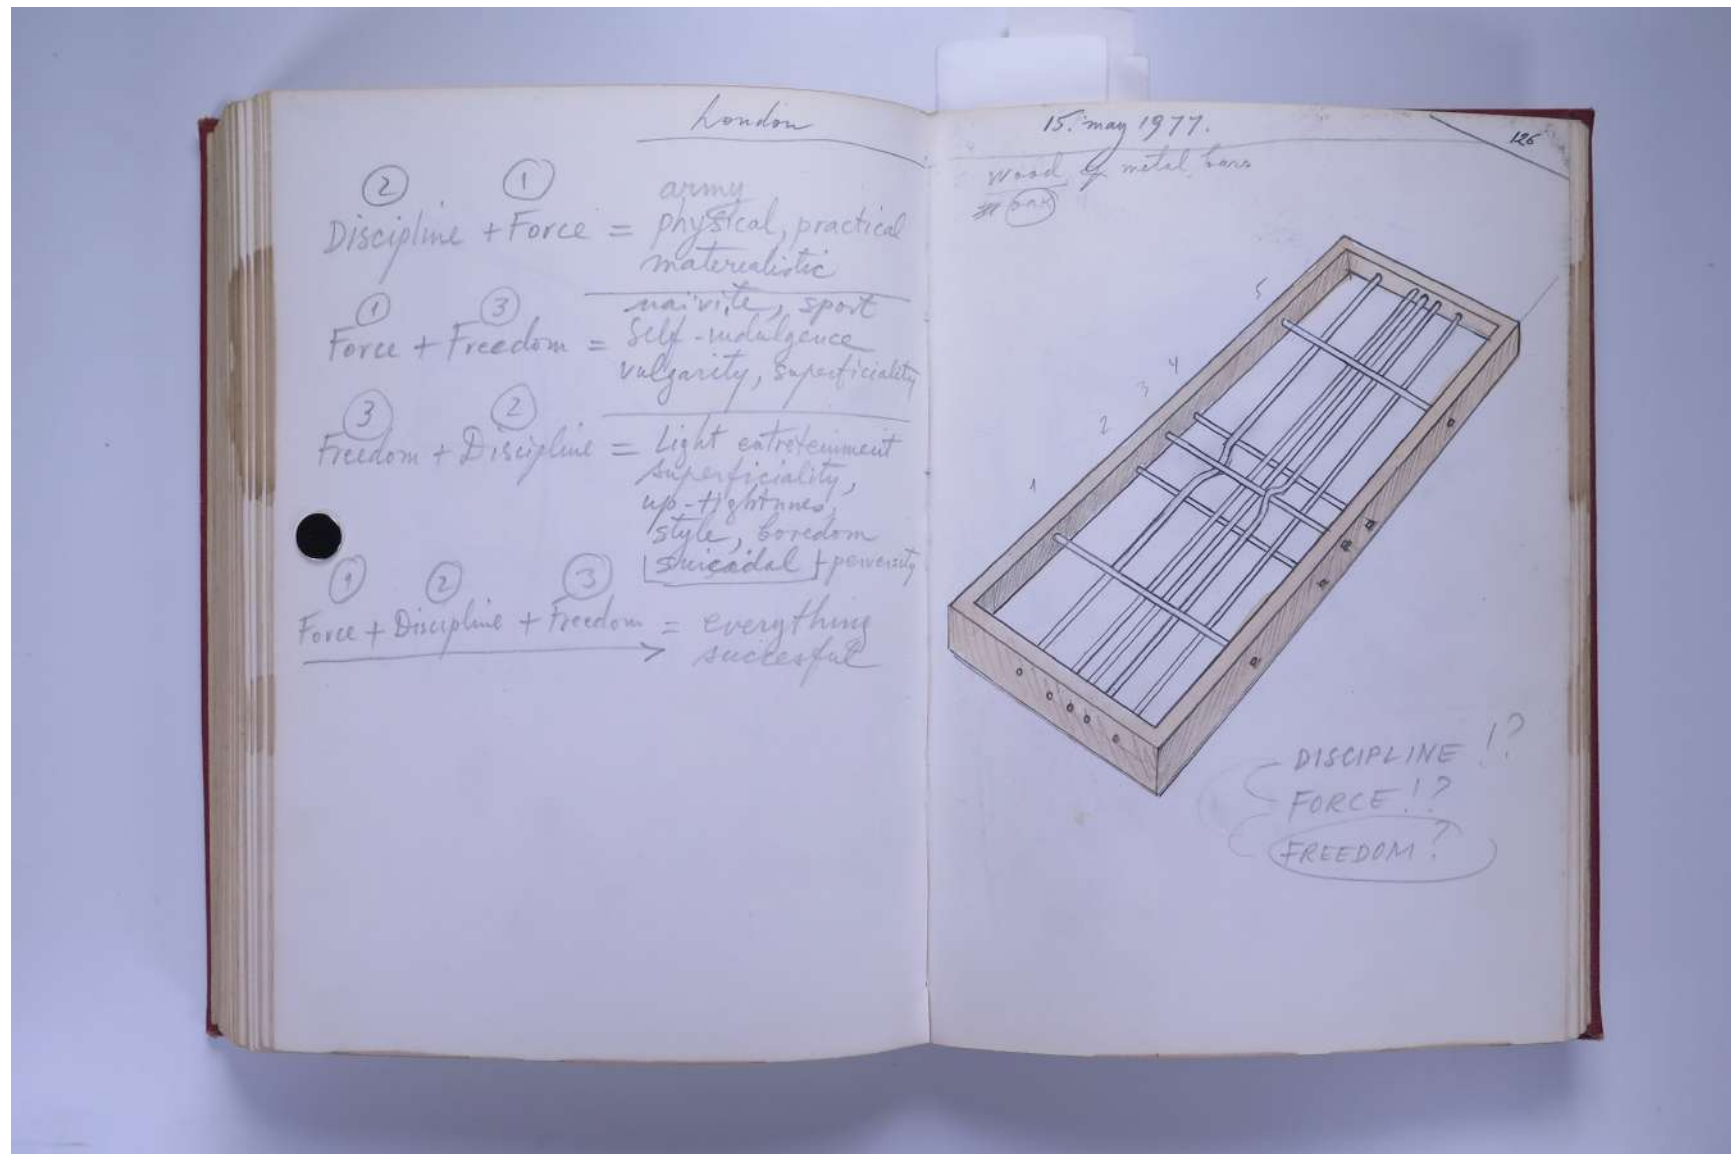 London
② ①
army
Discipline + Force = physical, practical
materialistic
① ③
naivite, sport
Force + Freedom = Self-indulgence
vulgarity, superficiality
③ ②
Freedom + Discipline = Light entreteinment
superficiality,
up-tightnnes,
style, boredom
suicadal + perversity
① ② ③
Force + Discipline + Freedom = everything
succesful
15. may 1977.
126
Wood & metal bars
oak
5
4
3
2
1
DISCIPLINE !?
FORCE !?
FREEDOM?